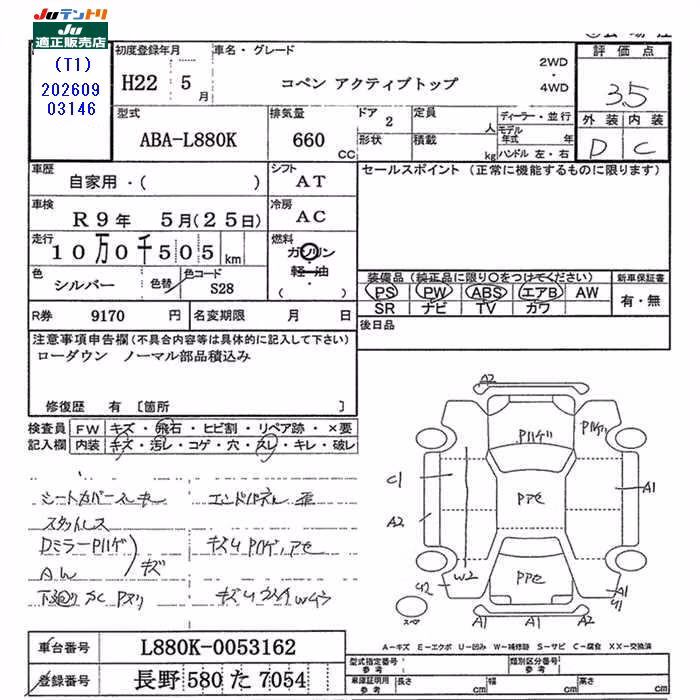 Juテントリ
Ju
適正販売店
(T1)
202609
03146
初度登録年月
H22 5月
車名・グレード
コペン アクティブトップ
2WD
・
4WD
評価点
3.5
外装 内装
D C
型式
ABA-L880K
排気量
660 CC
ドア 2
形状
定員 人
積載 kg
ディーラー・並行
モデル年式 年
ハンドル 左・右
車歴
自家用・( )
シフト
AT
セールスポイント (正常に機能するものに限ります)
車検
R9年 5月(25日)
冷房
AC
走行
10万0千505km
燃料
ガソリン
軽・油
( ・ )
色
シルバー
色替
色コード
S28
装備品 (純正品に限り○をつけてください)
PS PW ABS エアB AW
SR ナビ TV カワ
新車保証書
有・無
R券 9170 円
名変期限 月 日
後日品
注意事項申告欄(不具合内容等は具体的に記入して下さい)
ローダウン ノーマル部品積込み
修復歴 有 [箇所 ]
検査員 FW キズ・飛石・ヒビ割・リペア跡・×要
記入欄 内装 キズ・汚レ・コゲ・穴・スレ・キレ・破レ
シートカバー
エンドパネル
スタッドレス
DミラーPハゲ
キズ
キズUPハゲ
下廻りSC Pヌリ
A2
Pハゲ
Pハゲ
C1
A2
Pアセ
A1
A1
W2
Pアセ
U2
A1
A1
A1
U1
スペア
車台番号 L880K-0053162
登録番号 長野 580 た 7054
A-キズ E-エクボ U-凹み W-補修跡 S-サビ C-腐食 XX-交換済
型式指定番号 参考
類別区分番号 参考
車庫証明用 参考
長さ cm
幅 cm
高さ cm